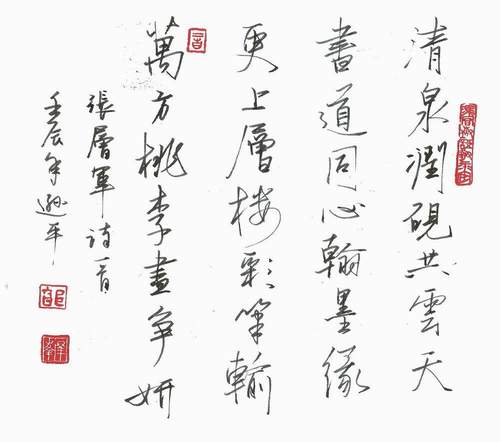 清泉潤硯共雲天
書道同心翰墨緣
更上層楼彩筆輸
萬方桃李畫争妍
張層軍诗一首
壬辰年遜平